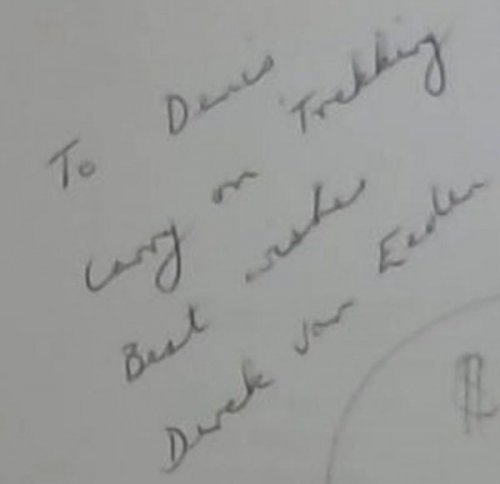 To Denis
Carry on Trekking
Best wishes
Derek van Eeden